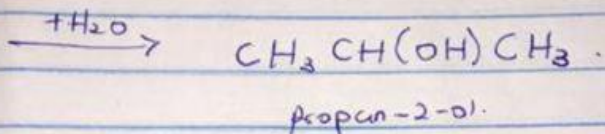 +H₂O
CH₃ CH(OH) CH₃.
propan-2-ol.